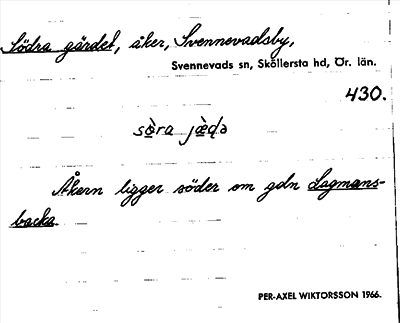 Södra gärdet, åker, Svennevadsby,
Svennevads sn, Sköllersta hd, Ör. län.
430.
sø̀ra jæ̀ḍə
Åkern ligger söder om gdn Lagmans-
backa
PER-AXEL WIKTORSSON 1966.